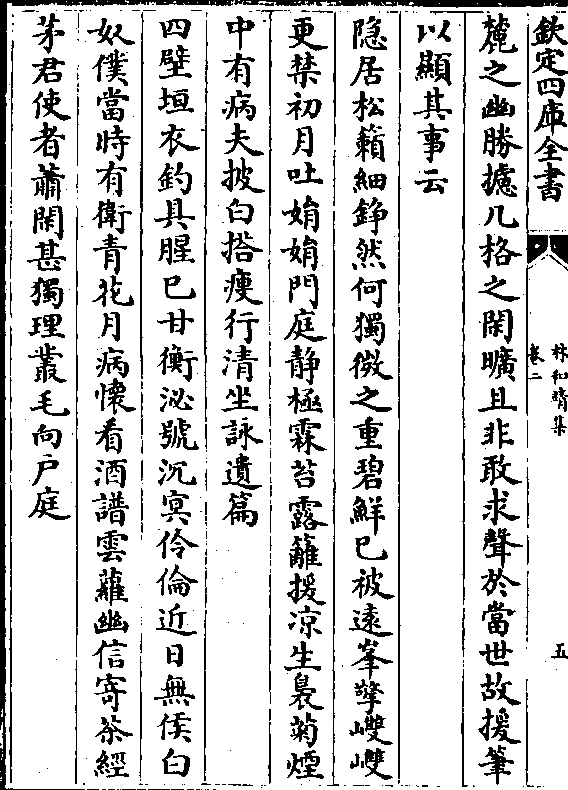 欽定四庫全書
林和靖集
卷二
五
麓之幽勝攄几格之閑曠且非敢求聲於當世故援筆
以顯其事云
隐居松籟細錚然何獨微之重碧鮮已被逺峯擎𡾼𡾼
更禁初月吐娟娟門庭静極霖苔露籬援凉生裊菊煙
中有病夫披白搭瘦行清坐詠遺篇
四壁垣衣釣具腥已甘衡泌號沉㝠伶倫近日無侯白
奴僕當時有衛青花月病懐看酒譜雲蘿幽信寄茶經
茅君使者蕭閑甚獨理叢毛向户庭